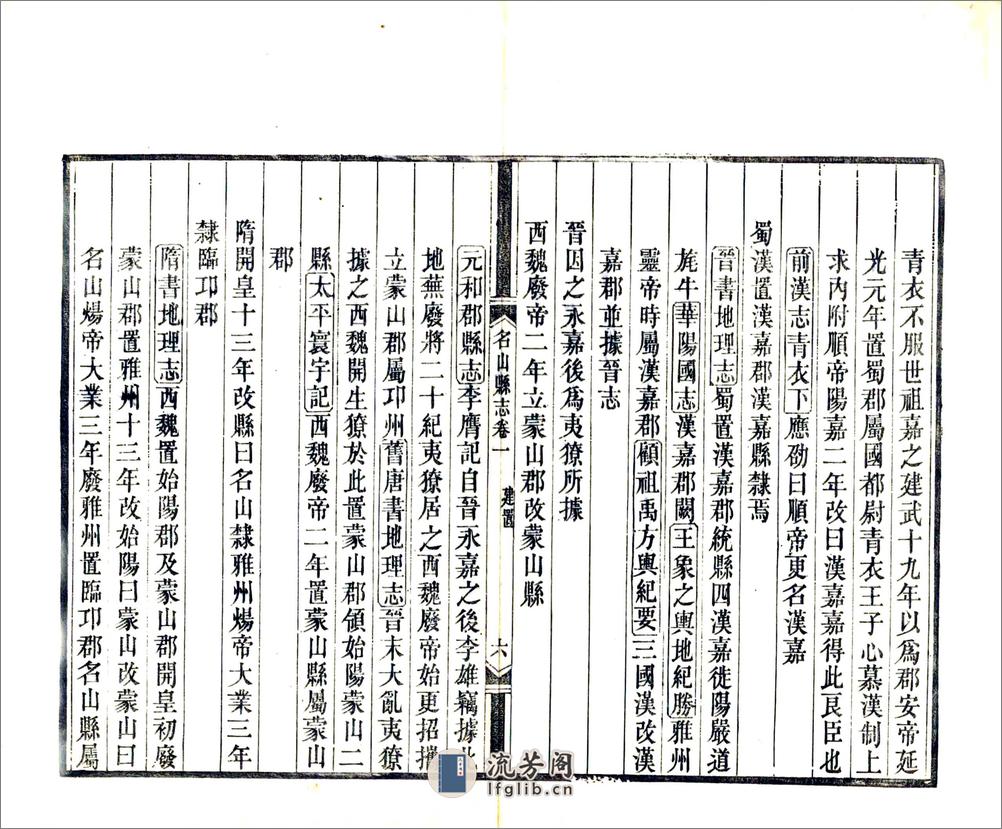 青衣不服世祖嘉之建武十九年以爲郡安帝延
光元年置蜀郡屬國都尉青衣王子心慕漢制上
求內附順帝陽嘉二年改曰漢嘉嘉得此良臣也
前漢志青衣下應劭曰順帝更名漢嘉
蜀漢置漢嘉郡漢嘉縣隸焉
晉書地理志蜀置漢嘉郡統縣四漢嘉徙陽嚴道
旄牛華陽國志漢嘉郡闕王象之輿地紀勝雅州
靈帝時屬漢嘉郡顧祖禹方輿紀要三國漢改漢
嘉郡並據晉志
晉因之永嘉後爲夷獠所據
西魏廢帝二年立蒙山郡改蒙山縣
名山縣志卷一
建置
六
元和郡縣志李膺記自晉永嘉之後李雄竊據此
地蕪廢將二十紀夷獠居之西魏廢帝始更招攜
立蒙山郡屬邛州舊唐書地理志晉末大亂夷獠
據之西魏開生獠於此置蒙山郡領始陽蒙山二
縣太平寰宇記西魏廢帝二年置蒙山縣屬蒙山
郡
隋開皇十三年改縣曰名山隸雅州煬帝大業三年
隸臨邛郡
隋書地理志西魏置始陽郡及蒙山郡開皇初廢
蒙山郡置雅州十三年改始陽曰蒙山改蒙山曰
名山煬帝大業三年廢雅州置臨邛郡名山縣屬
流芳阁
lfglib.cn